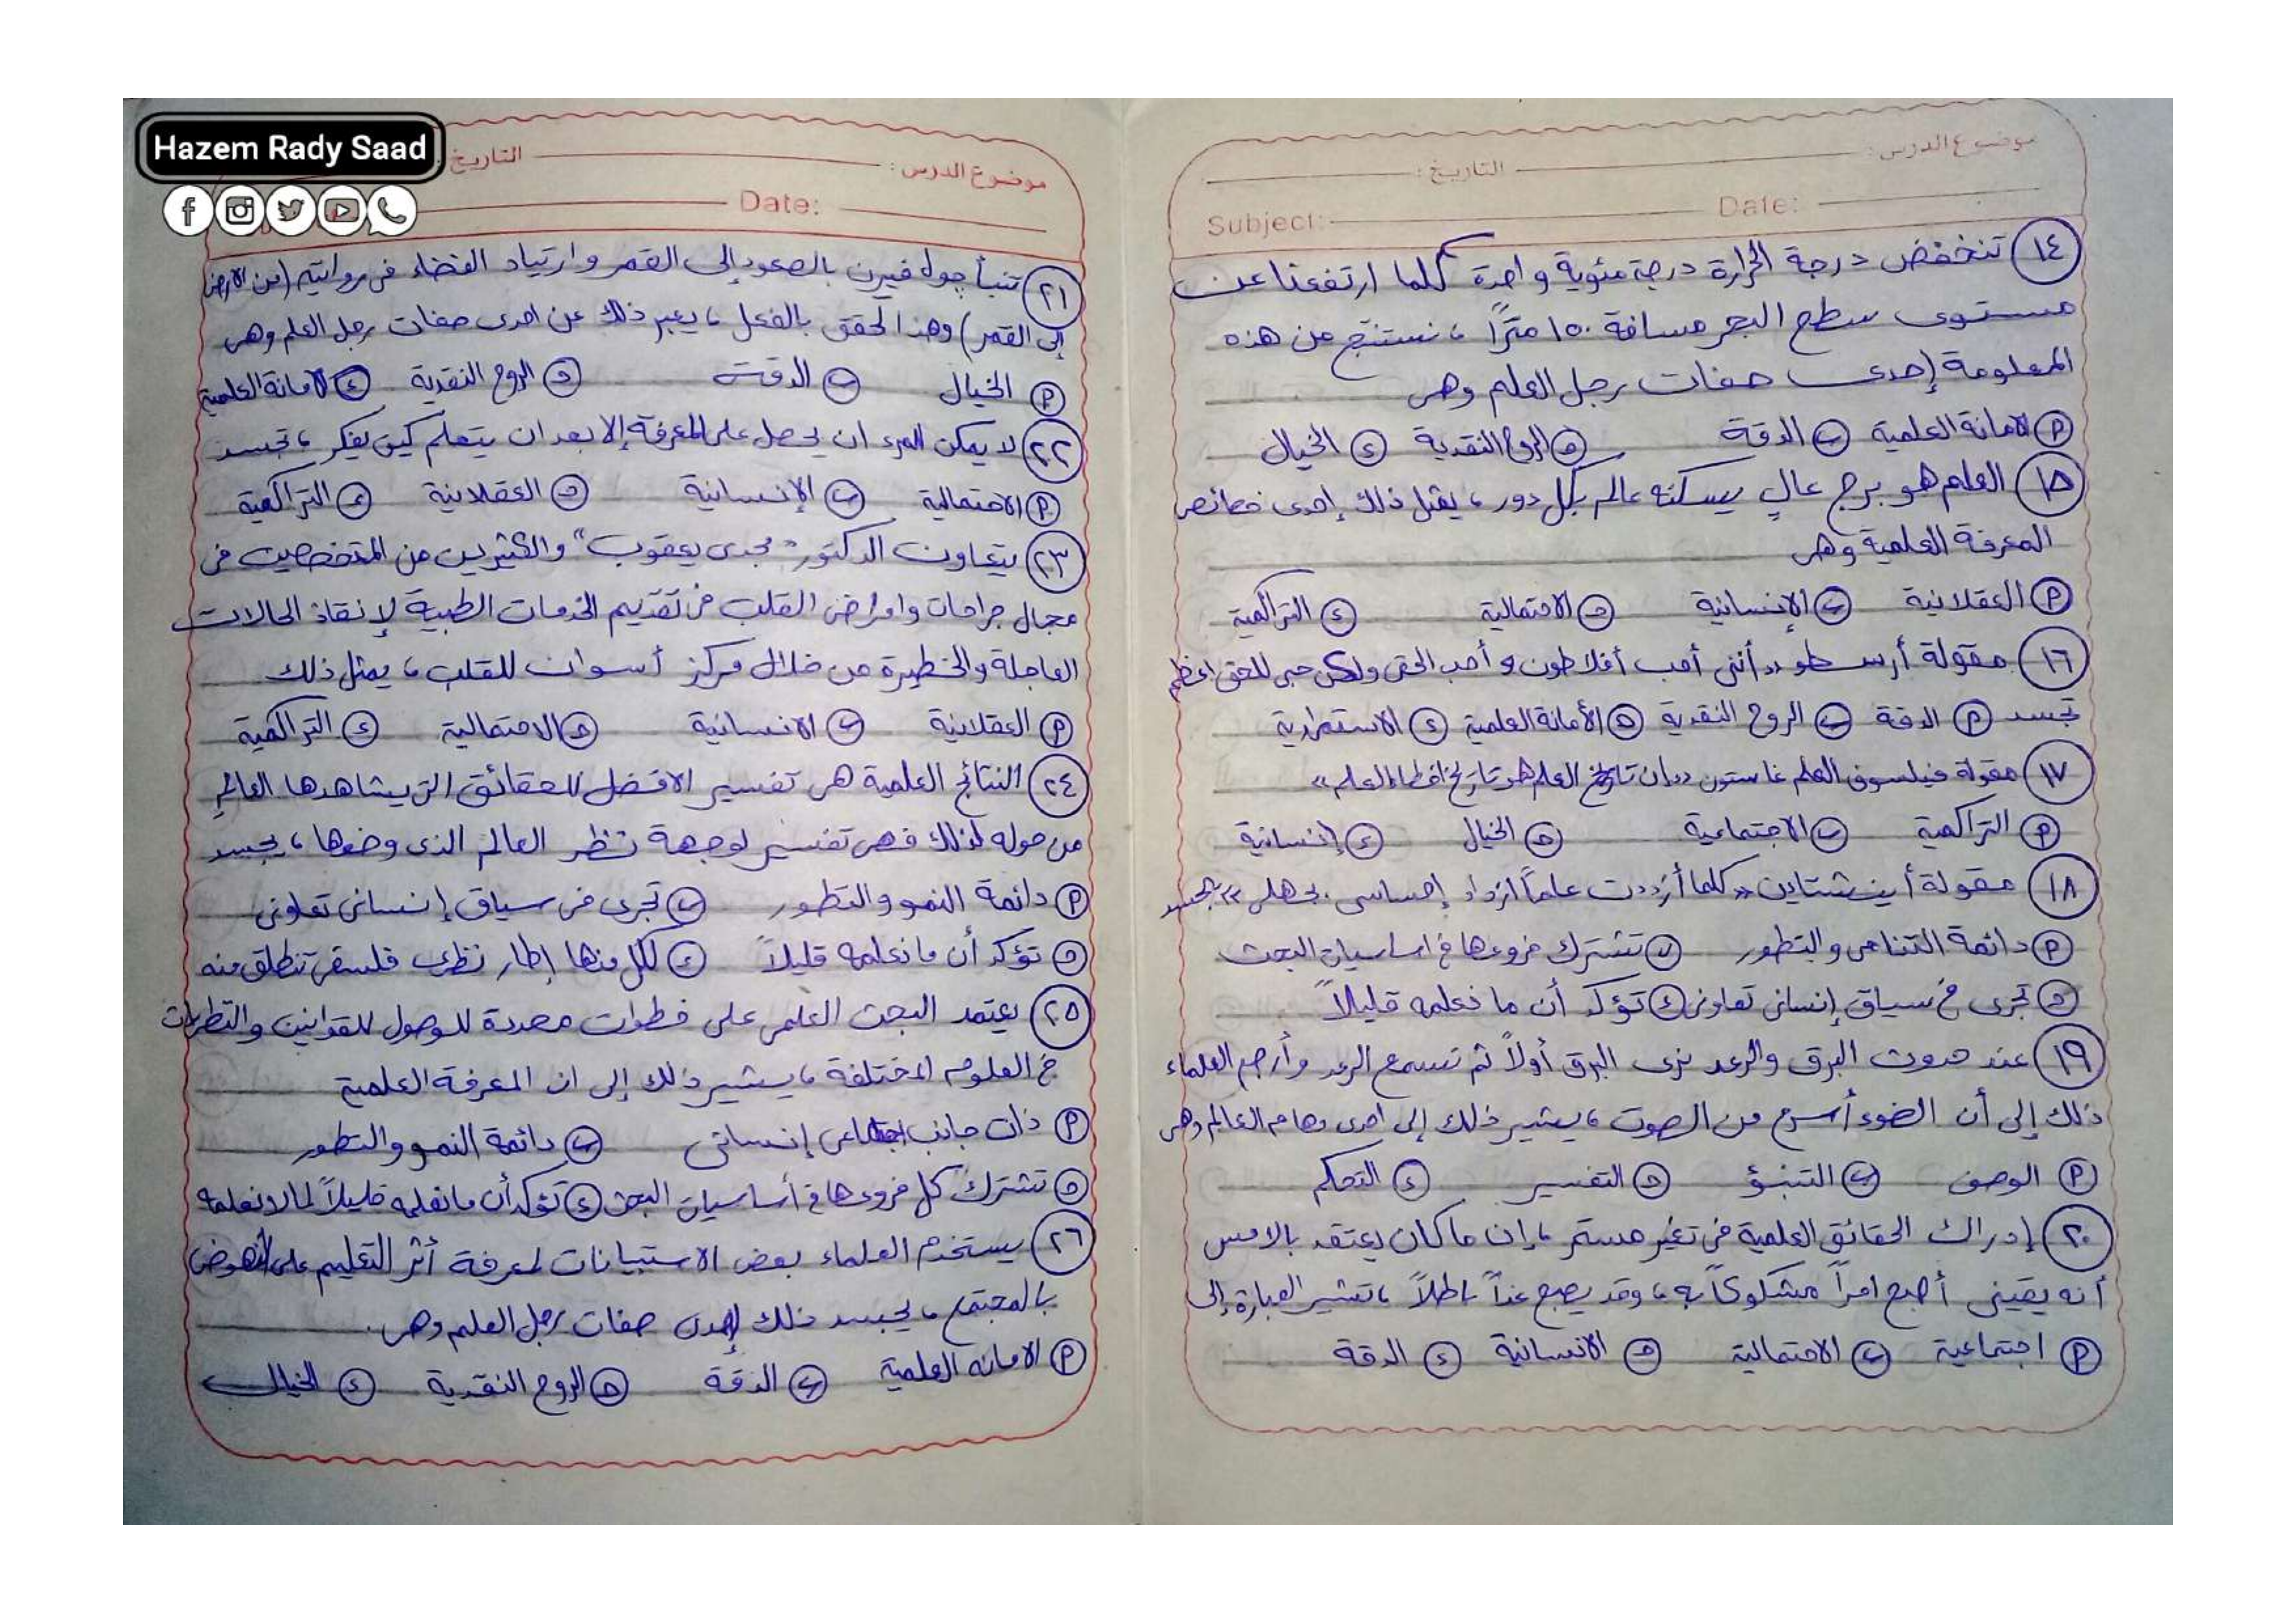 Hazem Rady Saad
موضوع الدرس: التاريخ:
Subject: Date:
١٤ تنخفض درجة الحرارة درجة مئوية واحدة كلما ارتفعنا عن
مستوى سطح البحر مسافة ١٥٠ مترًا ، نستنتج من هذه
المعلومة إحدى صفات رجل العلم وهى
أ الامانة العلمية ب الدقة ج الروح النقدية د الخيال
١٥ العلم هو برج عالٍ يسكنه عالم بكل دور ، يمثل ذلك إحدى خصائص
المعرفة العلمية وهى
أ العقلانية ب الإنسانية ج الاحتمالية د التراكمية
١٦ مقولة أرسطو «أننى أحب أفلاطون وأحب الحق ولكن حبى للحق اعظم
تجسد أ الدقة ب الروح النقدية ج الأمانة العلمية د الاستمرارية
١٧ مقولة فيلسوف العلم غاستون «ان تاريخ العلم هو تاريخ اخطاء العلم»
أ التراكمية ب الاجتماعية ج الخيال د إنسانية
١٨ مقولة أينشتاين «كلما أزددت علماً ازداد إحساسى بجهلى» يجسد
أ دائمة التنامى والتطور ب تشترك فروعها فى اساسيات البحث
ج تجرى فى سياق إنسانى تعاونى د تؤكد أن ما نعلمه قليلاً
١٩ عند حدوث البرق والرعد نرى البرق أولاً ثم نسمع الرعد وأرجع العلماء
ذلك إلى أن الضوء أسرع من الصوت ، يشير ذلك إلى احدى مهام العالم وهى
أ الوصف ب التنبؤ ج التفسير د التحكم
٢٠ إدراك الحقائق العلمية فى تغير مستمر ، إن ما كان يعتقد بالامس
أنه يقينى أصبح امراً مشكوكاً به ، وقد يصبح غداً باطلاً ، تشير العبارة إلى
أ اجتماعية ب الاحتمالية ج الانسانية د الدقة
موضوع الدرس: التاريخ
Date:
٢١ تنبأ جول فيرن بالصعود إلى القمر وارتياد الفضاء فى روايته (من الارض
إلى القمر) وهذا تحقق بالفعل ، يعبر ذلك عن احدى صفات رجل العلم وهى
أ الخيال ب الدقة ج الروح النقدية د الامانة العلمية
٢٢ لا يمكن المرء ان يحصل على المعرفة إلا بعد ان يتعلم كيف يفكر ، تجسد
أ الاحتمالية ب الإنسانية ج العقلانية د التراكمية
٢٣ يتعاون الدكتور "مجدى يعقوب" والكثيرين من المتخصصين فى
مجال جراحات وامراض القلب فى تقديم الخدمات الطبية لإنقاذ الحالات
العاجلة والخطيرة من خلال مركز أسوان للقلب ، يمثل ذلك
أ العقلانية ب الانسانية ج الاحتمالية د التراكمية
٢٤ النتائج العلمية هى تفسير الافضل للحقائق التى يشاهدها العالم
من حوله لذلك فهى تفسير لوجهة نظر العالم الذى وضعها ، يجسد
أ دائمة النمو والتطور ب تجرى فى سياق إنسانى تعاونى
ج تؤكد أن ما نعلمه قليلاً د لكل منها إطار نظرى فلسفى تنطلق منه
٢٥ يعتمد البحث العلمى على خطوات محددة للوصول للقوانين والنظريات
فى العلوم المختلفة ، يشير ذلك إلى ان المعرفة العلمية
أ ذات جانب اجتماعى إنسانى ب دائمة النمو والتطور
ج تشترك كل فروعها فى أساسيات البحث د تؤكد أن ما نعلمه قليلاً لما لا نعلمه
٢٦ يستخدم العلماء بعض الاستبيانات لمعرفة أثر التعليم على النهوض
بالمجتمع ، يجسد ذلك إحدى صفات رجل العلم وهى.
أ الامانه العلمية ب الدقة ج الروح النقدية د الخيال